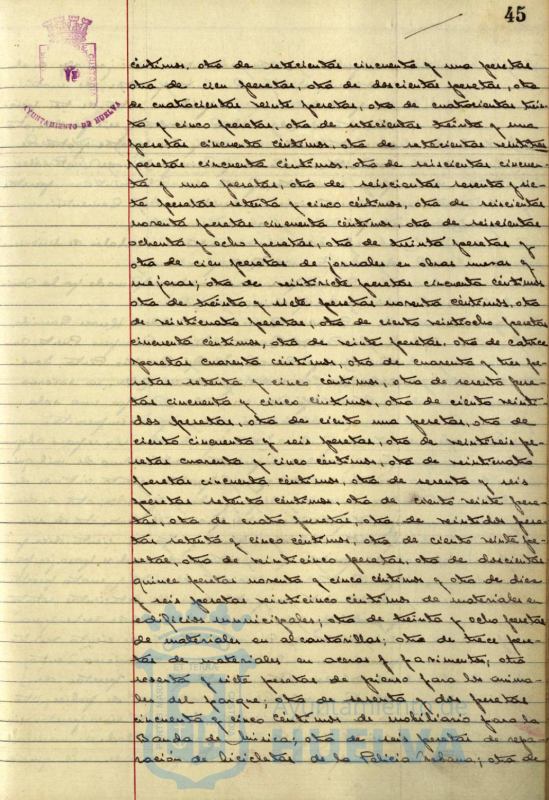 45
AYUNTAMIENTO DE HUELVA
céntimos, otra de setecientas cincuenta y una pesetas
otra de cien pesetas, otra de doscientas pesetas, otra
de cuatrocientas veinte pesetas, otra de cuatrocientas trein-
ta y cinco pesetas, otra de setecientas treinta y una
pesetas cincuenta céntimos, otra de setecientas veintitres
pesetas cincuenta céntimos, otra de seiscientas cincuen-
ta y una pesetas, otra de seiscientas sesenta y sie-
te pesetas setenta y cinco céntimos, otra de seiscientas
noventa pesetas cincuenta céntimos, otra de seiscientas
ochenta y ocho pesetas, otra de treinta pesetas y
otra de cien pesetas de jornales en obras nuevas y
mejoras; otra de veintisiete pesetas cincuenta céntimos
otra de treinta y siete pesetas noventa céntimos, otra
de veinticuatro pesetas, otra de ciento veintiocho pesetas
cincuenta céntimos, otra de veinte pesetas, otra de catorce
pesetas cuarenta céntimos, otra de cuarenta y tres pe-
setas setenta y cinco céntimos, otra de sesenta pese-
tas cincuenta y cinco céntimos, otra de ciento veinti-
dos pesetas, otra de ciento una pesetas, otra de
ciento cincuenta y seis pesetas, otra de veintiseis pe-
setas cuarenta y cinco céntimos, otra de veinticuatro
pesetas cincuenta céntimos, otra de sesenta y seis
pesetas setenta céntimos, otra de ciento veinte pese-
tas, otra de cuatro pesetas, otra de veintidos pese-
tas setenta y cinco céntimos, otra de ciento veinte pe-
setas, otra de veinticinco pesetas, otra de doscientas
quince pesetas noventa y cinco céntimos y otra de diez
y seis pesetas veinticinco céntimos de materiales en
edificios municipales; otra de treinta y ocho pesetas
de materiales en alcantarillas; otra de trece pese-
tas de materiales en aceras y pavimento; otra
sesenta y siete pesetas de pienso para los anima-
les del parque; otra de sesenta y dos pesetas
cincuenta y cinco céntimos de mobiliario para la
Banda de Música; otra de seis pesetas de repa-
ración de bicicletas de la Policía urbana; otra de
Ayuntamiento de
HUELVA